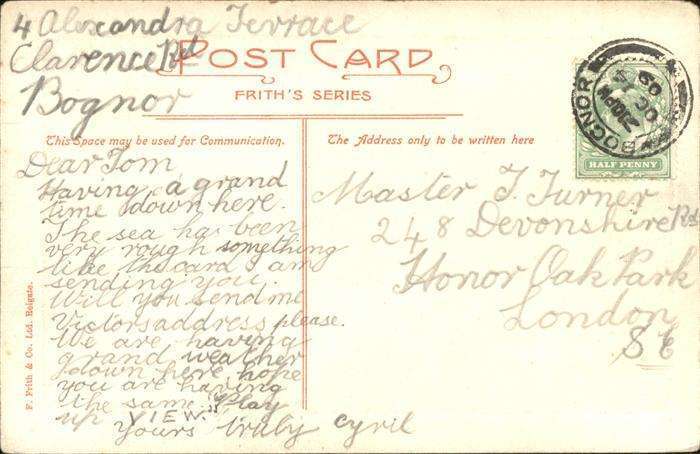 4 Alexandra Terrace
Clarence Rd
Bognor
POST CARD
FRITH'S SERIES
This Space may be used for Communication.
The Address only to be written here
BOGNOR
HALF PENNY
Dear Tom
Having a grand
time down here.
The sea has been
very rough something
like the card I am
sending you.
Will you send me
Victors address please.
We are having
grand weather
down here hope
you are having
the same. "Play
up VIEW."
Yours truly Cyril
Master T. Turner
248 Devonshire Rd
Honor Oak Park
London
S E
F. Frith & Co. Ltd. Reigate.